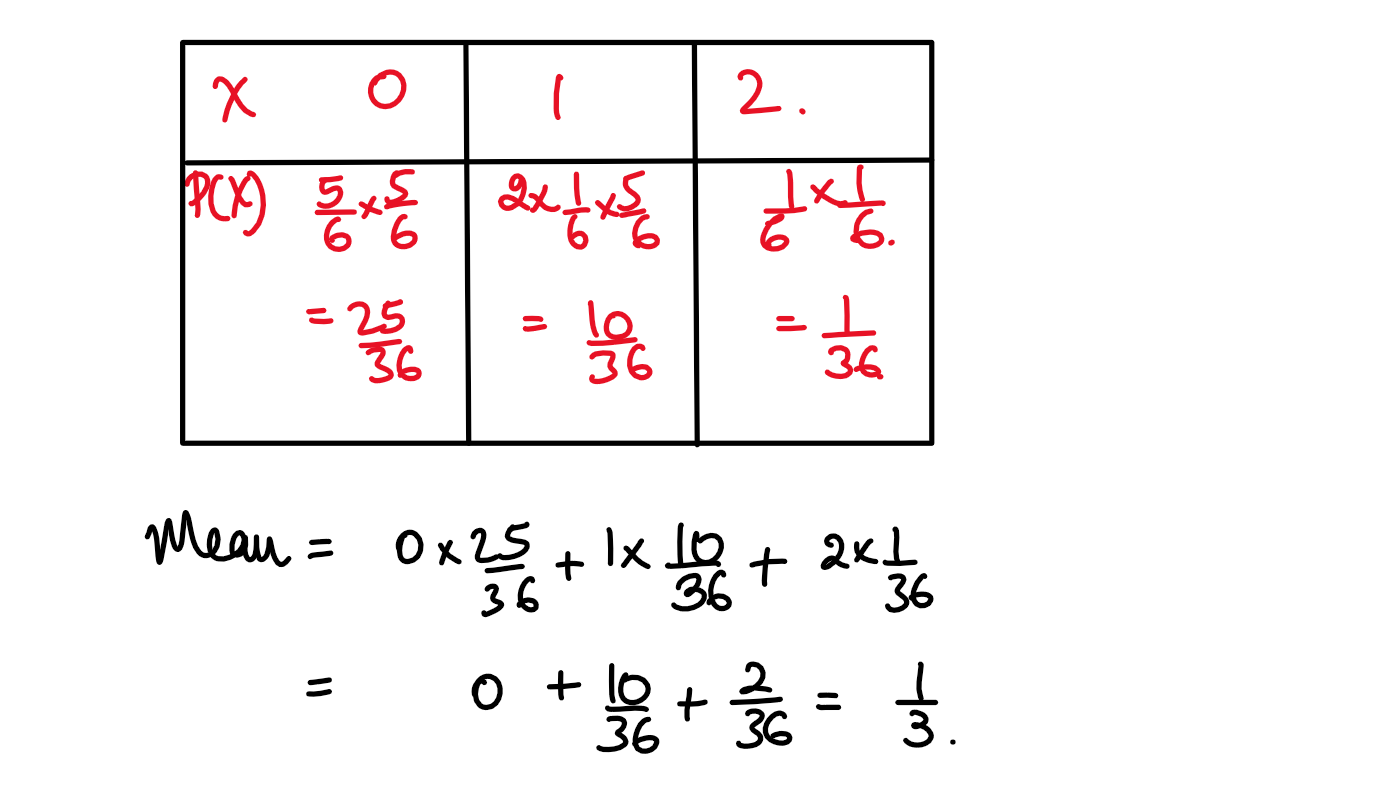 X 0 1 2.
P(X) 5/6 × 5/6 2 × 1/6 × 5/6 1/6 × 1/6.
= 25/36 = 10/36 = 1/36
Mean = 0 × 25/36 + 1 × 10/36 + 2 × 1/36
= 0 + 10/36 + 2/36 = 1/3.